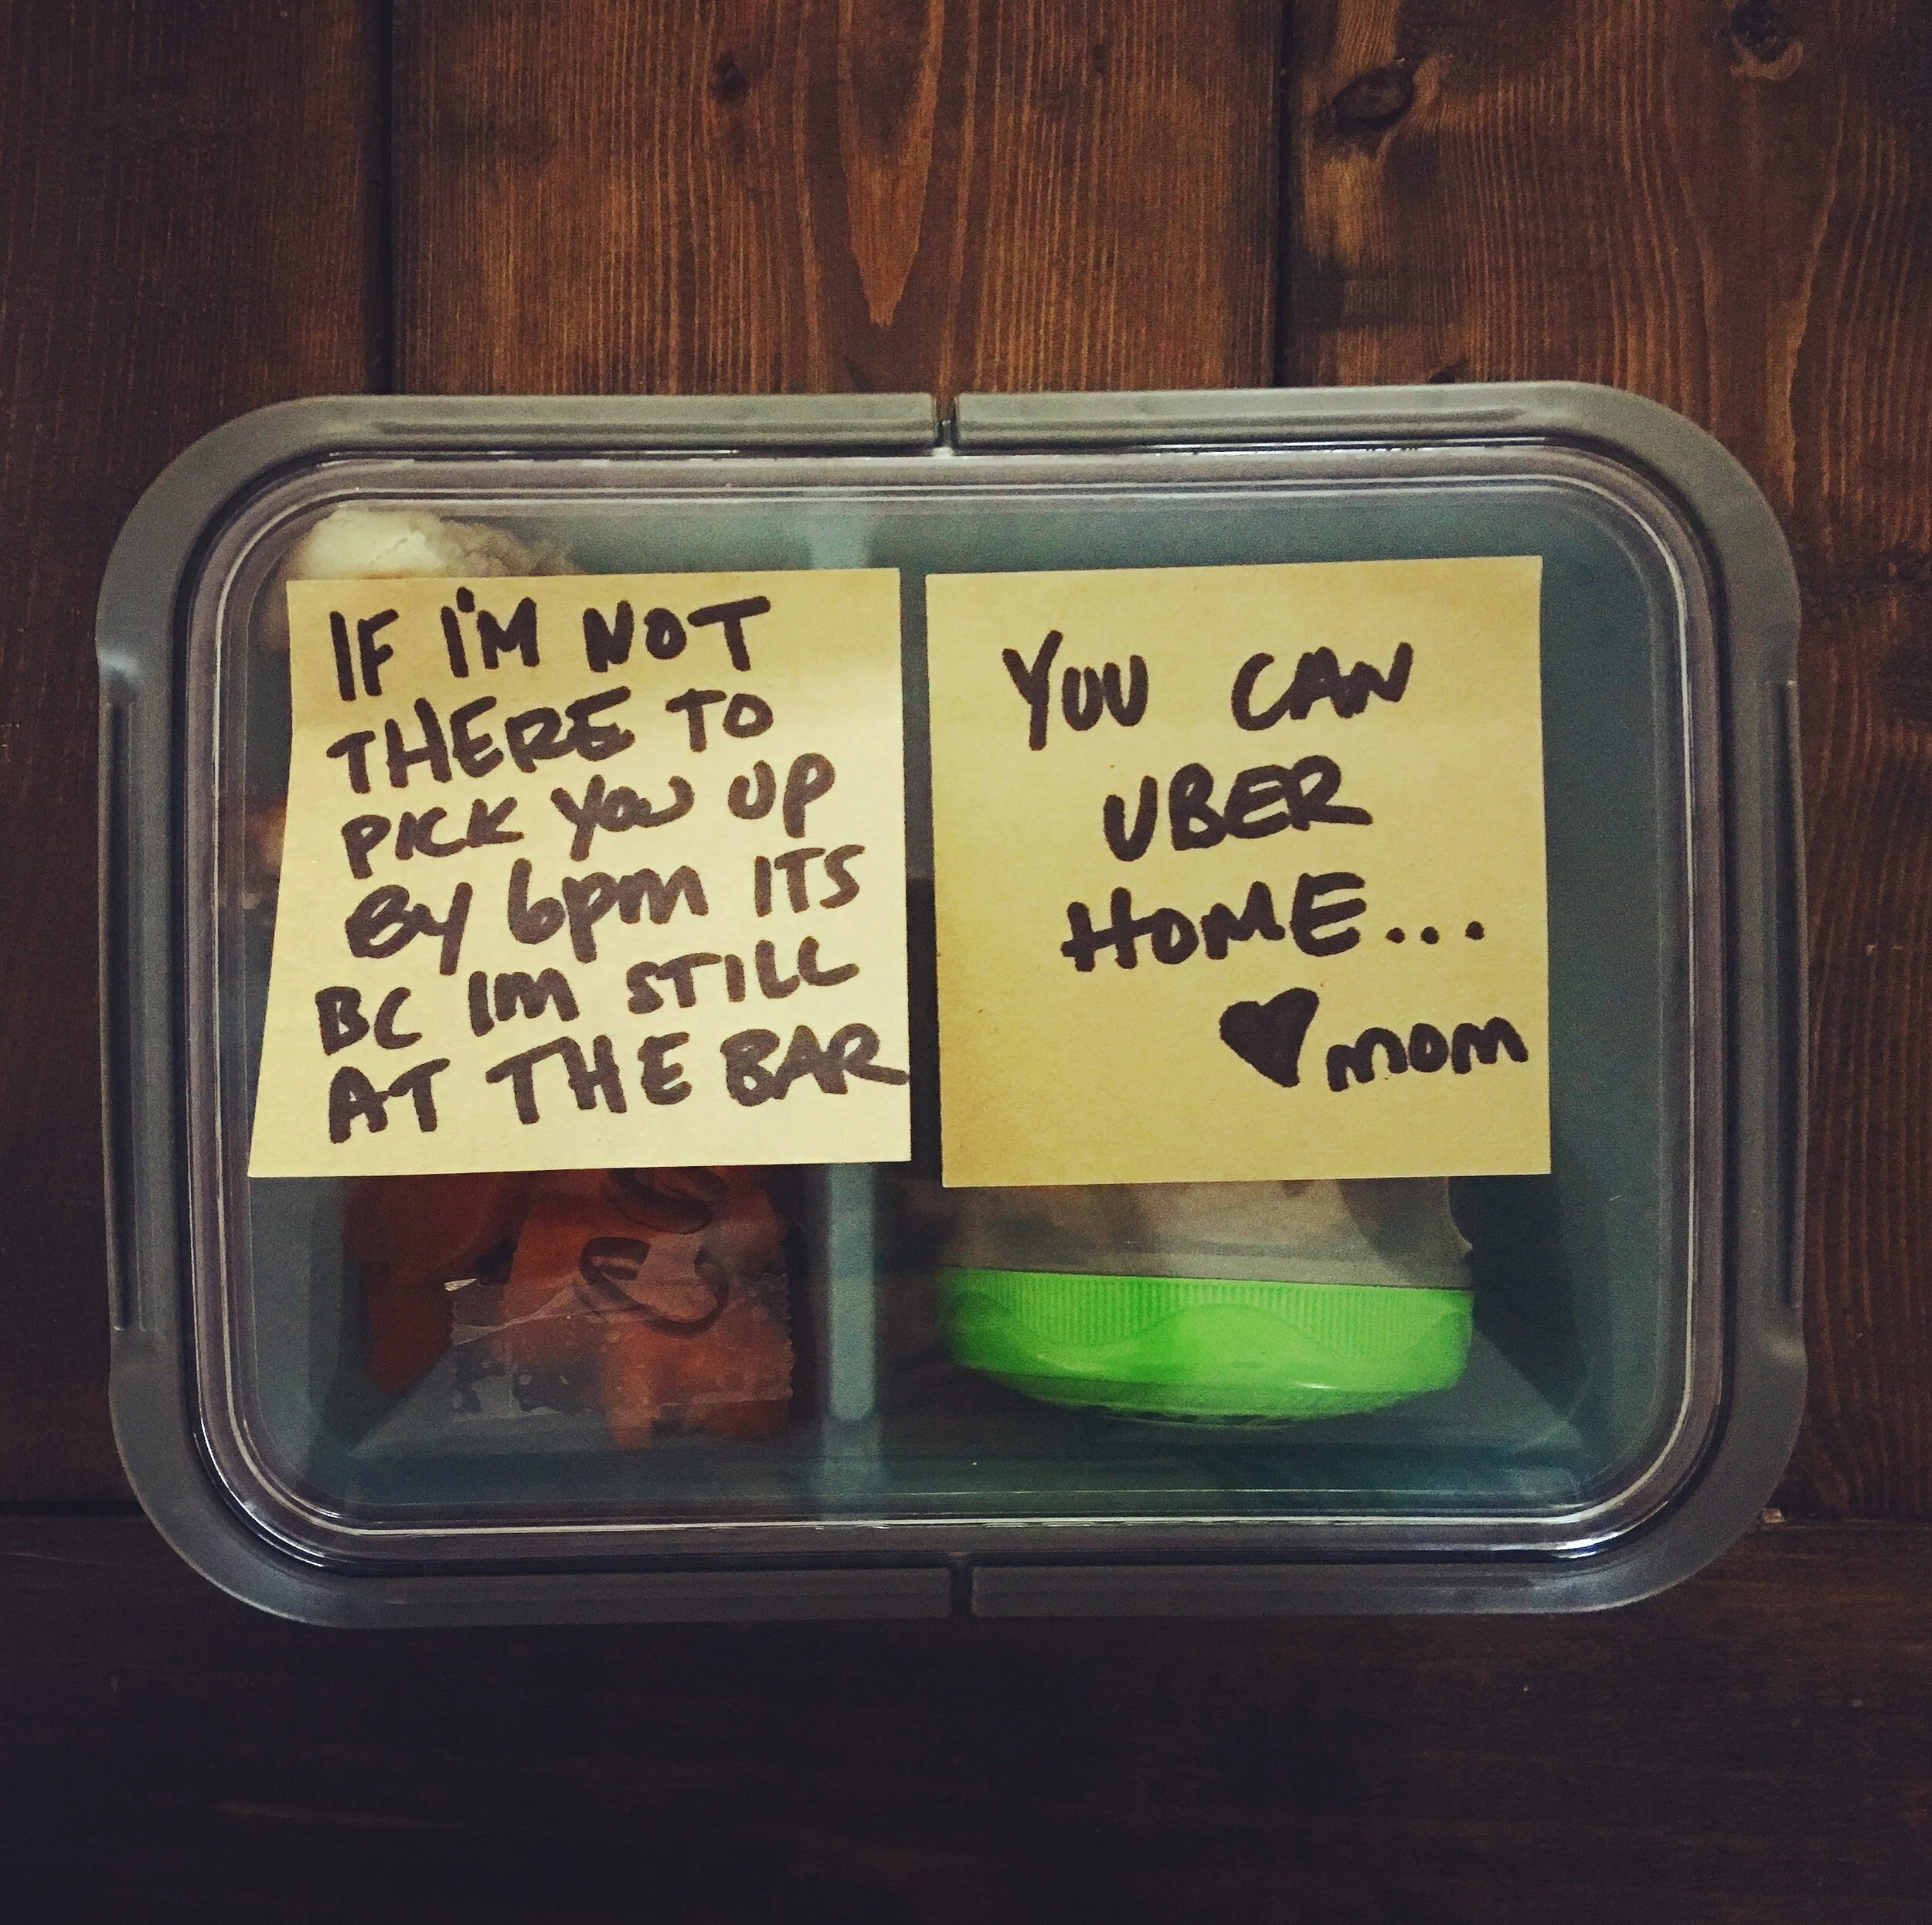 IF I'M NOT
THERE TO
PICK YOU UP
BY 6pm ITS
BC IM STILL
AT THE BAR
YOU CAN
UBER
HOME...
♥ mom